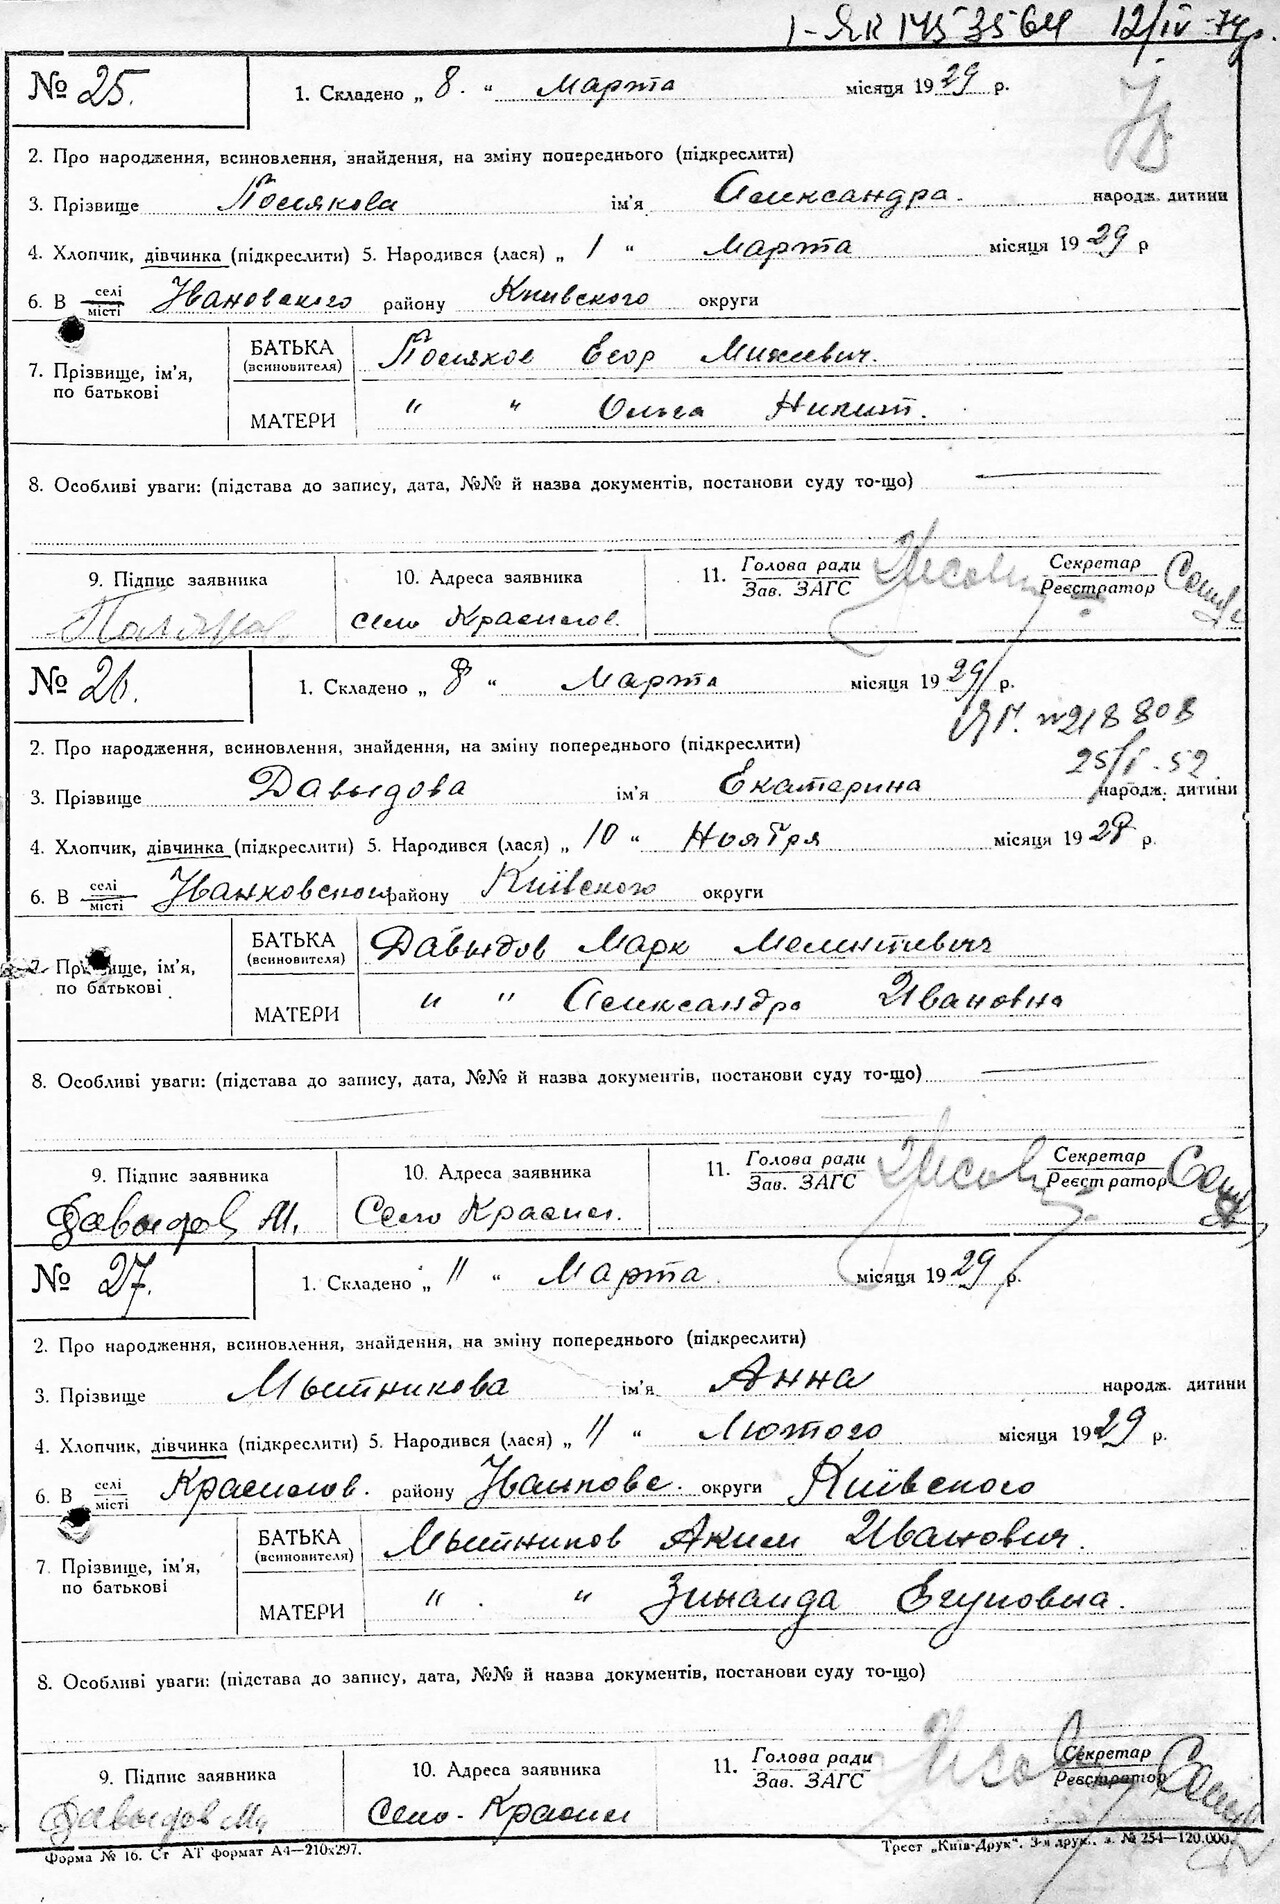 I-ЯК 1453564 12/IV-74р.
№ 25. 1. Складено „ 8. “ Марта місяця 1929 р.
2. Про народження, всиновлення, знайдення, на зміну попереднього (підкреслити)
3. Прізвище Полякова ім'я Александра. народж. дитини
4. Хлопчик, дівчинка (підкреслити) 5. Народився (лася) „ 1 “ Марта місяця 1929 р
6. В селі/місті Ивановского району Киевского округи
7. Прізвище, ім'я, по батькові
БАТЬКА (всиновителя) Поляков Егор Михеевич.
МАТЕРИ " " Ольга Никит.
8. Особливі уваги: (підстава до запису, дата, №№ й назва документів, постанови суду то-що)
9. Підпис заявника 10. Адреса заявника 11. Голова ради/Зав. ЗАГС Секретар/Реєстратор
Село Красилов.
№ 26. 1. Складено „ 8 “ Марта місяця 1929 р.
ЯГ. №218808
2. Про народження, всиновлення, знайдення, на зміну попереднього (підкреслити)
25/I-52
3. Прізвище Давыдова ім'я Екатерина народж. дитини
4. Хлопчик, дівчинка (підкреслити) 5. Народився (лася) „ 10 “ Ноября місяця 1928 р.
6. В селі/місті Иванковского району Київского округи
7. Прізвище, ім'я, по батькові
БАТЬКА (всиновителя) Давыдов Марк Мелентиевич
МАТЕРИ " " Александра Ивановна
8. Особливі уваги: (підстава до запису, дата, №№ й назва документів, постанови суду то-що)
9. Підпис заявника 10. Адреса заявника 11. Голова ради/Зав. ЗАГС Секретар/Реєстратор
Давыдов М. Село Красил.
№ 27. 1. Складено „ 11 “ Марта місяця 1929 р.
2. Про народження, всиновлення, знайдення, на зміну попереднього (підкреслити)
3. Прізвище Мытникова ім'я Анна народж. дитини
4. Хлопчик, дівчинка (підкреслити) 5. Народився (лася) „ 11 “ Лютого місяця 1929 р.
6. В селі/місті Красилов. району Иванковс. округи Київского
7 Прізвище, ім'я, по батькові
БАТЬКА (всиновителя) Мытников Аким Иванович.
МАТЕРИ " " Зинаида Егуповна.
8. Особливі уваги: (підстава до запису, дата, №№ й назва документів, постанови суду то-що)
9. Підпис заявника 10. Адреса заявника 11. Голова ради/Зав. ЗАГС Секретар/Реєстратор
Давыдов М. Село - Красил
Форма № 16. Ст АТ формат А4—210х297. Трест „Київ-Друк“. 3-я друк., з. № 254—120.000.